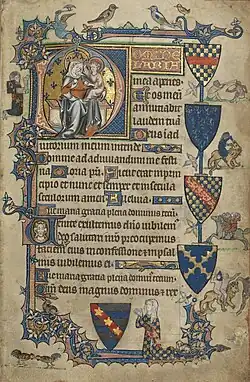 mea aperies
Et os meum
annuntiabit
laudem tuā
Deus in ad
iutorium meum intende
Domine ad adiuuandum me festi
na Gloria pr̄i Sicut erat in prin
cipio et nunc et semper et in secula
seculorum amen Alleluia
Aue maria gratia plena dominus tecū
Venite exultemus dn̄o iubilem
deo salutari nr̄o preoccupemus
faciem eius in confessione et in psal
mis iubilemus ei
Aue maria gratia plena dominus tecum
Qm̄ deus magnus dominus et rex